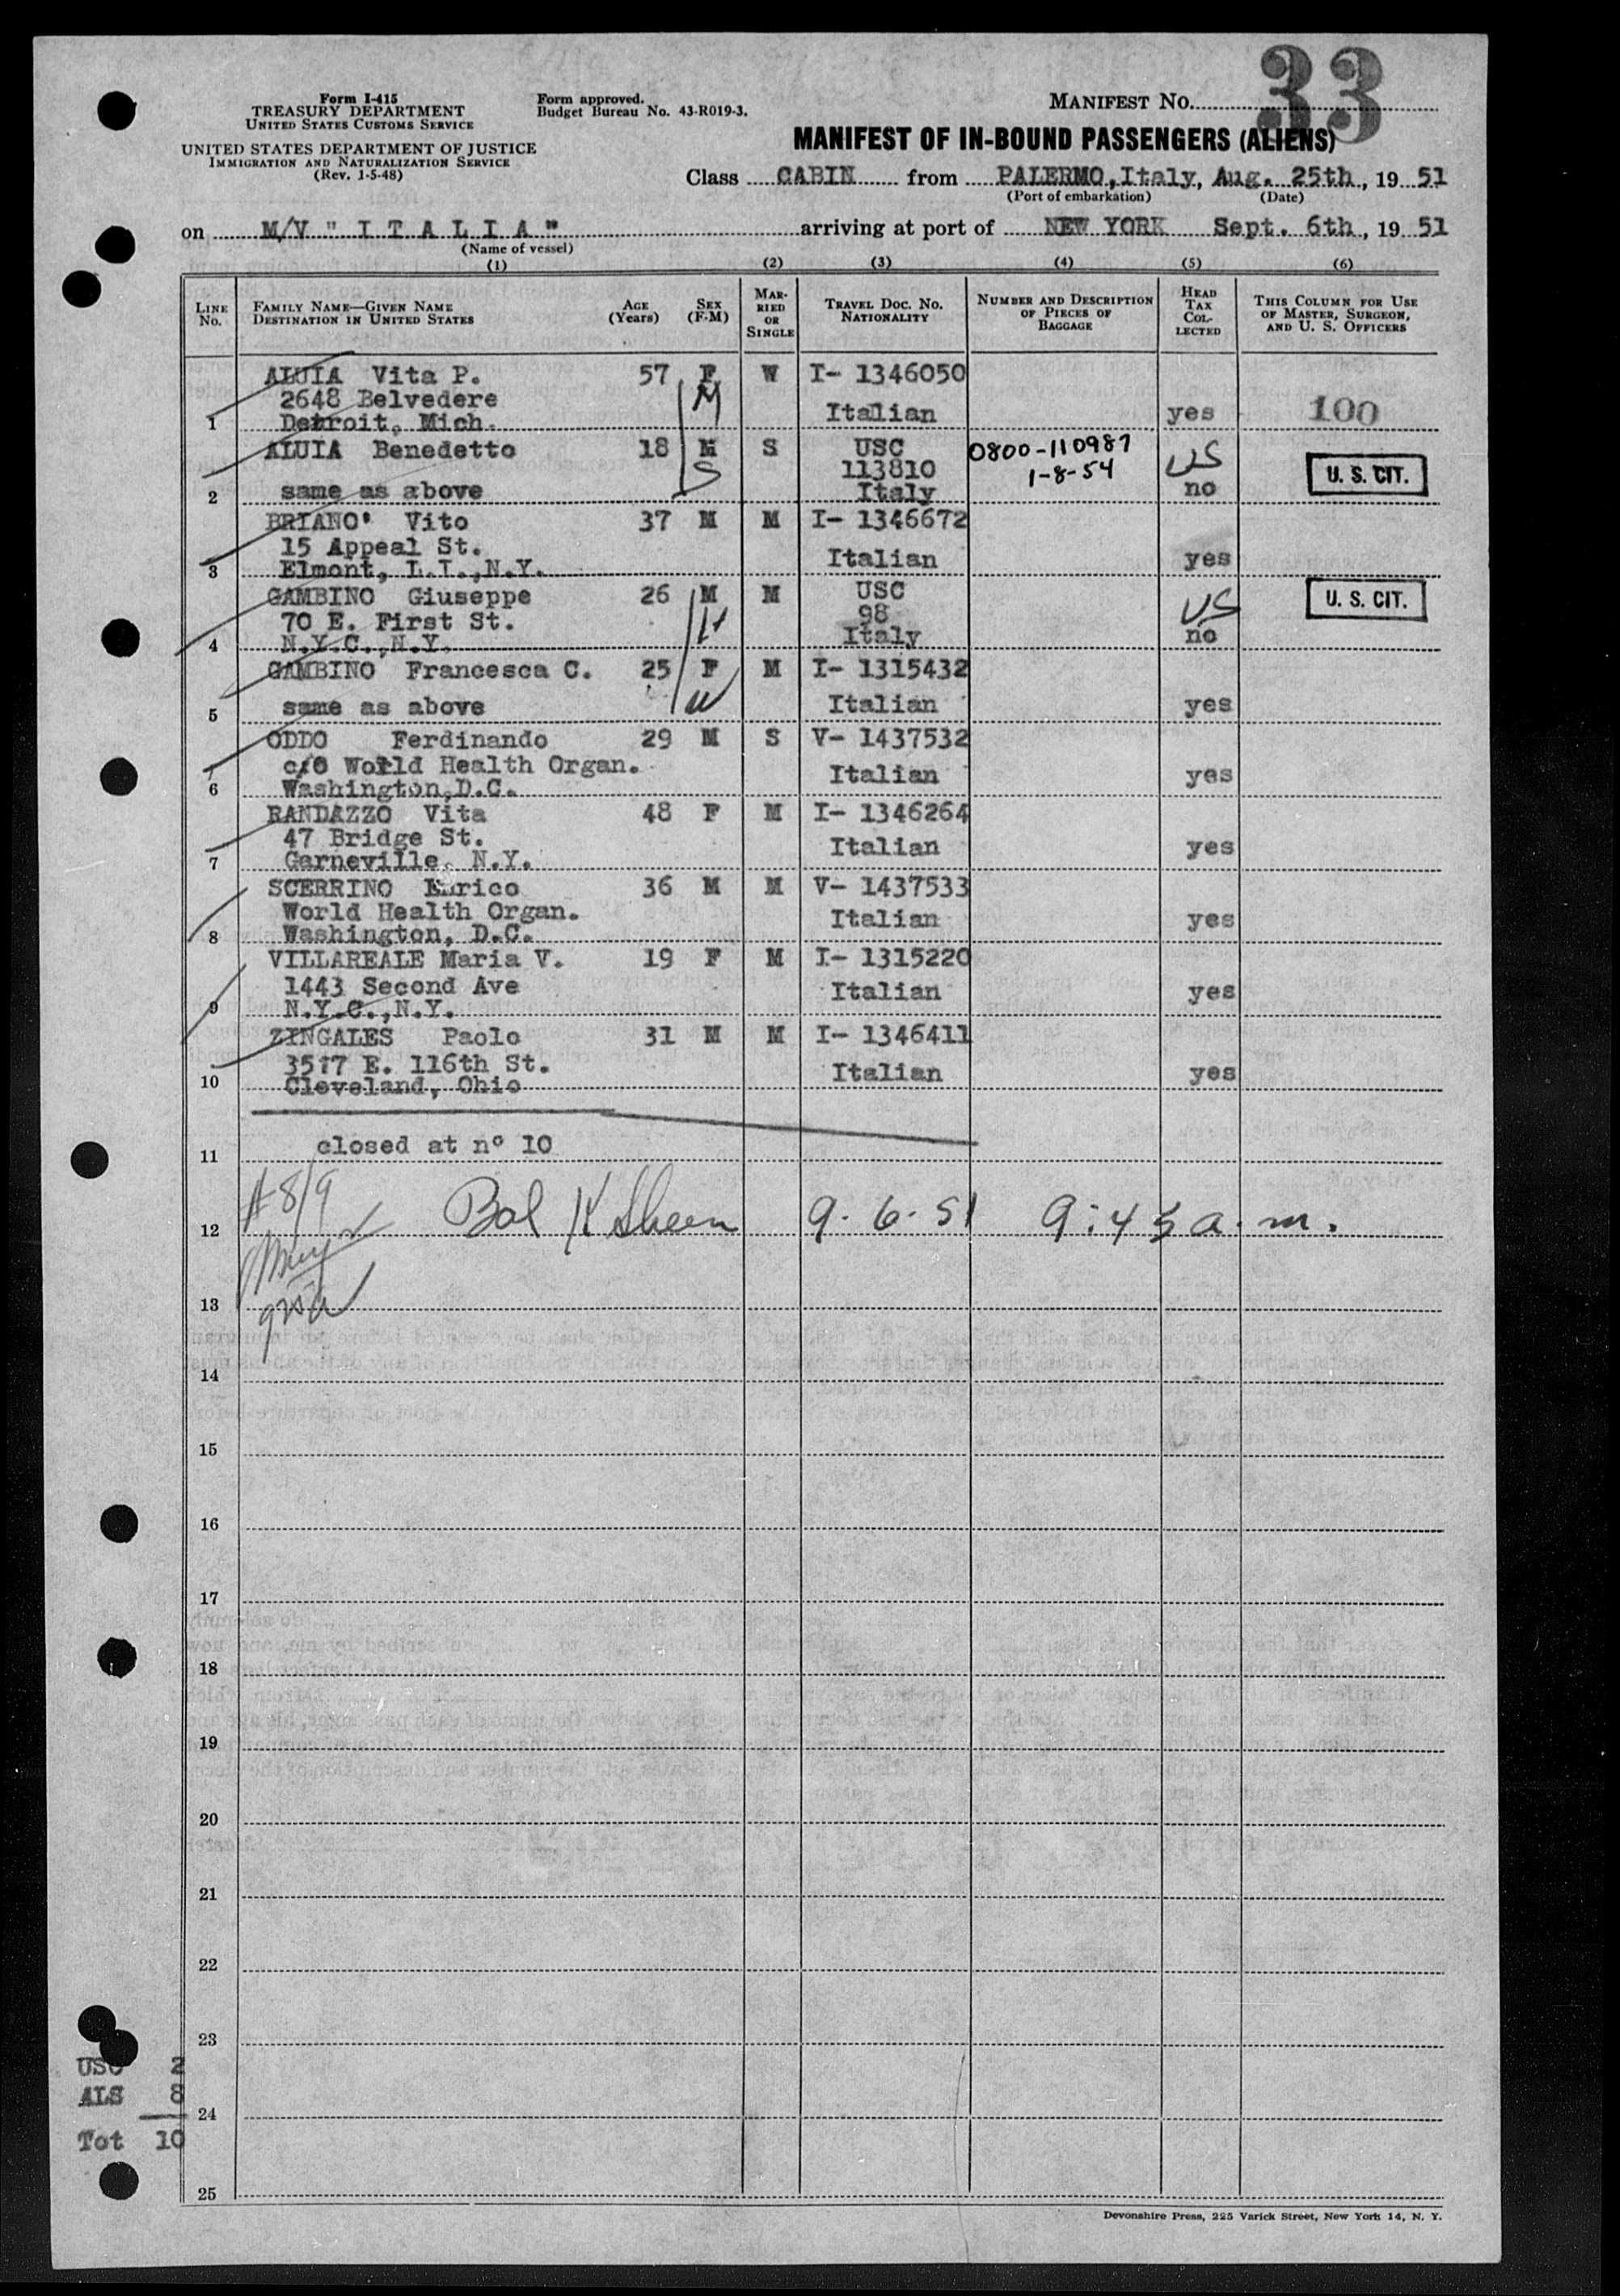 33
Form I-415
TREASURY DEPARTMENT
UNITED STATES CUSTOMS SERVICE
UNITED STATES DEPARTMENT OF JUSTICE
IMMIGRATION AND NATURALIZATION SERVICE
(Rev. 1-5-48)
Form approved.
Budget Bureau No. 43-R019-3.
MANIFEST NO.
MANIFEST OF IN-BOUND PASSENGERS (ALIENS)
Class CABIN from PALERMO, Italy, Aug. 25th, 19 51
(Port of embarkation) (Date)
on M/V " I T A L I A " arriving at port of NEW YORK Sept. 6th, 19 51
(Name of vessel)
(1) (2) (3) (4) (5) (6)
LINE No. FAMILY NAME—GIVEN NAME DESTINATION IN UNITED STATES AGE (Years) SEX (F-M) MARRIED OR SINGLE TRAVEL DOC. NO. NATIONALITY NUMBER AND DESCRIPTION OF PIECES OF BAGGAGE HEAD TAX COLLECTED THIS COLUMN FOR USE OF MASTER, SURGEON, AND U. S. OFFICERS
ALUIA Vita P. 57 F W I- 1346050
2648 Belvedere M Italian yes 100
1 Detroit, Mich.
ALUIA Benedetto 18 M S USC 0800-110987
S 113810 1-8-54 US U. S. CIT.
2 same as above Italy no
BRIANO' Vito 37 M M I- 1346672
15 Appeal St. Italian yes
3 Elmont, L.I.,N.Y.
GAMBINO Giuseppe 26 M M USC U. S. CIT.
70 E. First St. H 98 US
4 N.Y.C.,N.Y. Italy no
GAMBINO Francesca C. 25 F M I- 1315432
5 same as above W Italian yes
ODDO Ferdinando 29 M S V- 1437532
c/o World Health Organ. Italian yes
6 Washington,D.C.
RANDAZZO Vita 48 F M I- 1346264
47 Bridge St. Italian yes
7 Garneville, N.Y.
SCERRINO Enrico 36 M M V- 1437533
World Health Organ. Italian yes
8 Washington, D.C.
VILLAREALE Maria V. 19 F M I- 1315220
1443 Second Ave Italian yes
9 N.Y.C.,N.Y.
ZINGALES Paolo 31 M M I- 1346411
3517 E. 116th St. Italian yes
10 Cleveland, Ohio
11 closed at nº 10
#8/9
12 9-6-51 9:45 a.m.
13
14
15
16
17
18
19
20
21
22
23
USC 2
ALS 8
24
Tot 10
25
Devonshire Press, 225 Varick Street, New York 14, N. Y.